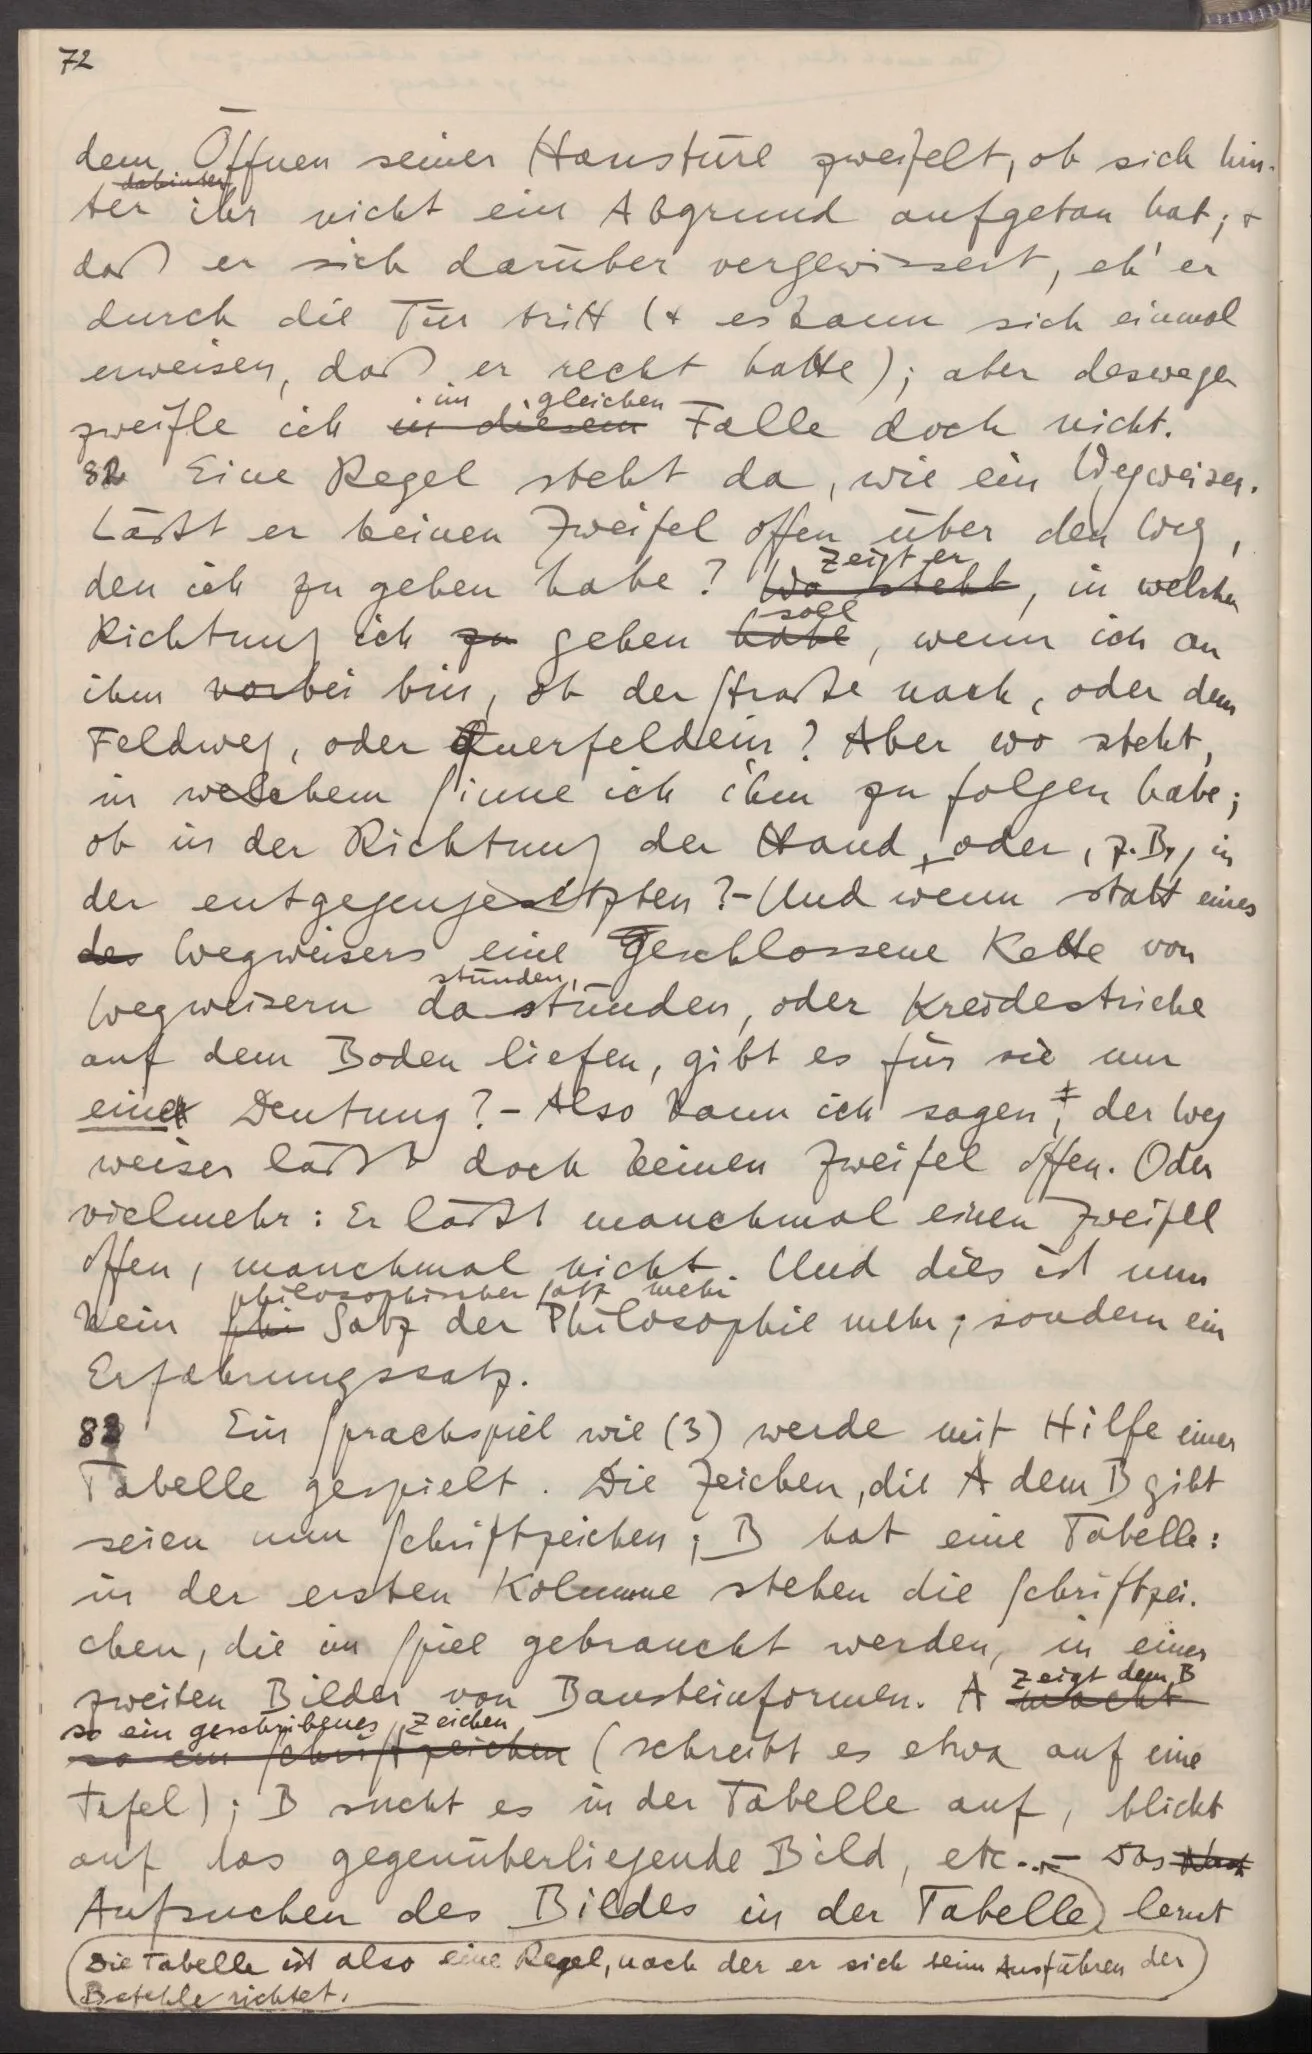 72
dem Öffnen seiner Haustüre zweifelt, ob sich hin-
dahinter
ter ihr nicht ein Abgrund aufgetan hat; +
daß er sich darüber vergewissert, eh' er
durch die Tür tritt (+ es kann sich einmal
erweisen, daß er recht hatte); aber deswegen
im gleichen
zweifle ich in diesem Falle doch nicht.
82 Eine Regel steht da, wie ein Wegweiser.
Läßt er keinen Zweifel offen über den Weg,
zeigt er
den ich zu gehen habe? Wo steht, in welcher
soll
Richtung ich zu gehen habe, wenn ich an
ihm vorbei bin, ob der Straße nach, oder dem
Feldweg, oder Querfeldein? Aber wo steht,
in welchem Sinne ich ihm zu folgen habe;
ob in der Richtung der Hand, oder, z.B., in
der entgegengesetzten? – Und wenn statt eines
des Wegweisers eine geschlossene Kette von
stünden,
Wegweisern da stünden, oder Kreidestriche
auf dem Boden liefen, gibt es für sie nur
eine Deutung? – Also kann ich sagen, der Weg
weiser läßt doch keinen Zweifel offen. Oder
vielmehr: Er läßt manchmal einen Zweifel
offen, manchmal nicht. Und dies ist nun
philosophischer Satz mehr
kein phi Satz der Philosophie mehr; sondern ein
Erfahrungssatz.
83 Ein Sprachspiel wie (3) werde mit Hilfe einer
Tabelle gespielt. Die Zeichen, die A dem B gibt
seien nun Schriftzeichen; B hat eine Tabelle:
in der ersten Kolumne stehen die Schriftzei-
chen, die im Spiel gebraucht werden, in einer
zeigt dem B
zweiten Bilder von Bausteinformen. A macht
so ein geschribenes Zeichen
so ein Schriftzeichen (schreibt es etwa auf eine
Tafel); B sucht es in der Tabelle auf, blickt
auf das gegenüberliegende Bild, etc.. – Das
Aufsuchen des Bildes in der Tabelle lernt
Die Tabelle ist also eine Regel, nach der er sich beim Ausführen der
Befehle richtet.